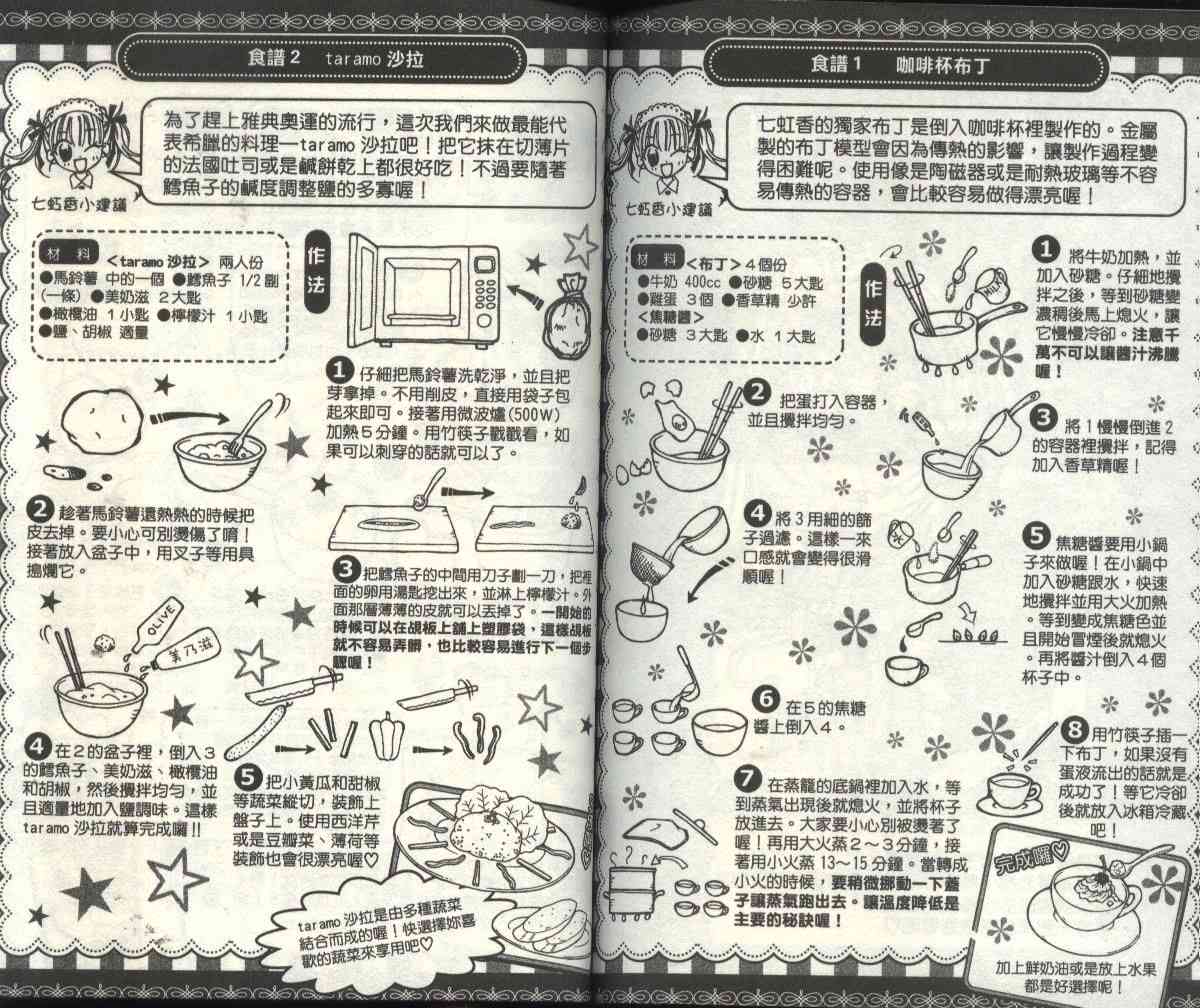 食譜1 咖啡杯布丁
七虹香的獨家布丁是倒入咖啡杯裡製作的。金屬
製的布丁模型會因為傳熱的影響，讓製作過程變
得困難呢。使用像是陶磁器或是耐熱玻璃等不容
易傳熱的容器，會比較容易做得漂亮喔！
七虹香小建議
材料
<布丁>４個份
●牛奶 400cc ●砂糖 ５大匙
●雞蛋 ３個 ●香草精 少許
<焦糖醬>
●砂糖 ３大匙 ●水 １大匙
作法
❶ 將牛奶加熱，並
加入砂糖。仔細地攪
拌之後，等到砂糖變
濃稠後馬上熄火，讓
它慢慢冷卻。注意千
萬不可以讓醬汁沸騰
喔！
MILK
❷ 把蛋打入容器，
並且攪拌均勻。
❸ 將１慢慢倒進２
的容器裡攪拌，記得
加入香草精喔！
❹ 將３用細的篩
子過濾。這樣一來
口感就會變得很滑
順喔！
❺ 焦糖醬要用小鍋
子來做喔！在小鍋中
加入砂糖跟水，快速
地攪拌並用大火加熱
。等到變成焦糖色並
且開始冒煙後就熄火
。再將醬汁倒入４個
杯子中。
水
❻ 在５的焦糖
醬上倒入４。
❼ 在蒸籠的底鍋裡加入水，等
到蒸氣出現後就熄火，並將杯子
放進去。大家要小心別被燙著了
喔！再用大火蒸２～３分鐘，接
著用小火蒸13～15分鐘。當轉成
小火的時候，要稍微挪動一下蓋
子讓蒸氣跑出去。讓溫度降低是
主要的秘訣喔！
❽ 用竹筷子插一
下布丁，如果沒有
蛋液流出的話就是
成功了！等它冷卻
後就放入冰箱冷藏
吧！
完成囉♡
加上鮮奶油或是放上水果
都是好選擇呢！
食譜2 taramo沙拉
為了趕上雅典奧運的流行，這次我們來做最能代
表希臘的料理—taramo沙拉吧！把它抹在切薄片
的法國吐司或是鹹餅乾上都很好吃！不過要隨著
鱈魚子的鹹度調整鹽的多寡喔！
七虹香小建議
材料
<taramo沙拉> 兩人份
●馬鈴薯 中的一個 ●鱈魚子 1/2副
(一條) ●美奶滋 ２大匙
●橄欖油 １小匙 ●檸檬汁 １小匙
●鹽、胡椒 適量
作法
❶ 仔細把馬鈴薯洗乾淨，並且把
芽拿掉。不用削皮，直接用袋子包
起來即可。接著用微波爐(500W)
加熱５分鐘。用竹筷子戳戳看，如
果可以刺穿的話就可以了。
❷ 趁著馬鈴薯還熱熱的時候把
皮去掉。要小心可別燙傷了唷！
接著放入盆子中，用叉子等用具
搗爛它。
❸ 把鱈魚子的中間用刀子劃一刀，把裡
面的卵用湯匙挖出來，並淋上檸檬汁。外
面那層薄薄的皮就可以丟掉了。一開始的
時候可以在砧板上舖上塑膠袋，這樣砧板
就不容易弄髒，也比較容易進行下一個步
驟喔！
OLIVE
美乃滋
❹ 在２的盆子裡，倒入３
的鱈魚子、美奶滋、橄欖油
和胡椒，然後攪拌均勻，並
且適量地加入鹽調味。這樣
taramo沙拉就算完成囉!!
❺ 把小黃瓜和甜椒
等蔬菜縱切，裝飾上
盤子上。使用西洋芹
或是豆瓣菜、薄荷等
裝飾也會很漂亮喔♡
taramo沙拉是由多種蔬菜
結合而成的喔！快選擇妳喜
歡的蔬菜來享用吧♡